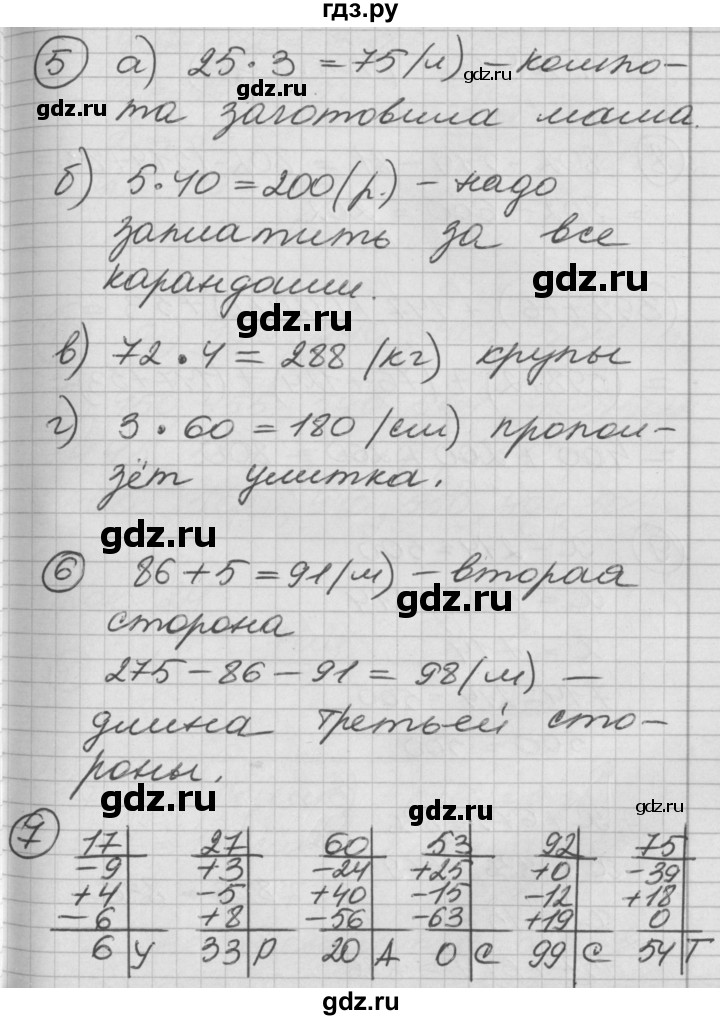 гдз.ру
5 а) 25·3 = 75 (л) – компо-
та заготовила мама.
б) 5·40 = 200 (р.) – надо
запматить за все
карандаши.
в) 72·4 = 288 (кг) крупы
г) 3·60 = 180 (см) пропол-
зёт улитка.
6 86+5=91(м) – вторая
сторона
275–86–91 = 98(м) –
длина третьей сто-
роны.
7
17 27 60 53 92 75
–9 +3 –24 +25 +0 –39
+4 –5 +40 –15 –12 +18
–6 +8 –56 –63 +19 0
6 У 33 Р 20 А 0 С 99 С 54 Т
gdz.ru
gdz.ru
gdz.ru
gdz.ru
gdz.ru
gdz.ru
gdz.ru
gdz.ru
gdz.ru
gdz.ru
gdz.ru
gdz.ru